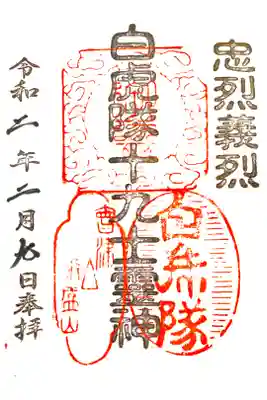 忠烈義烈
白虎隊十九士霊神
白虎隊
會津
飯盛山
令和二年二月九日奉拝